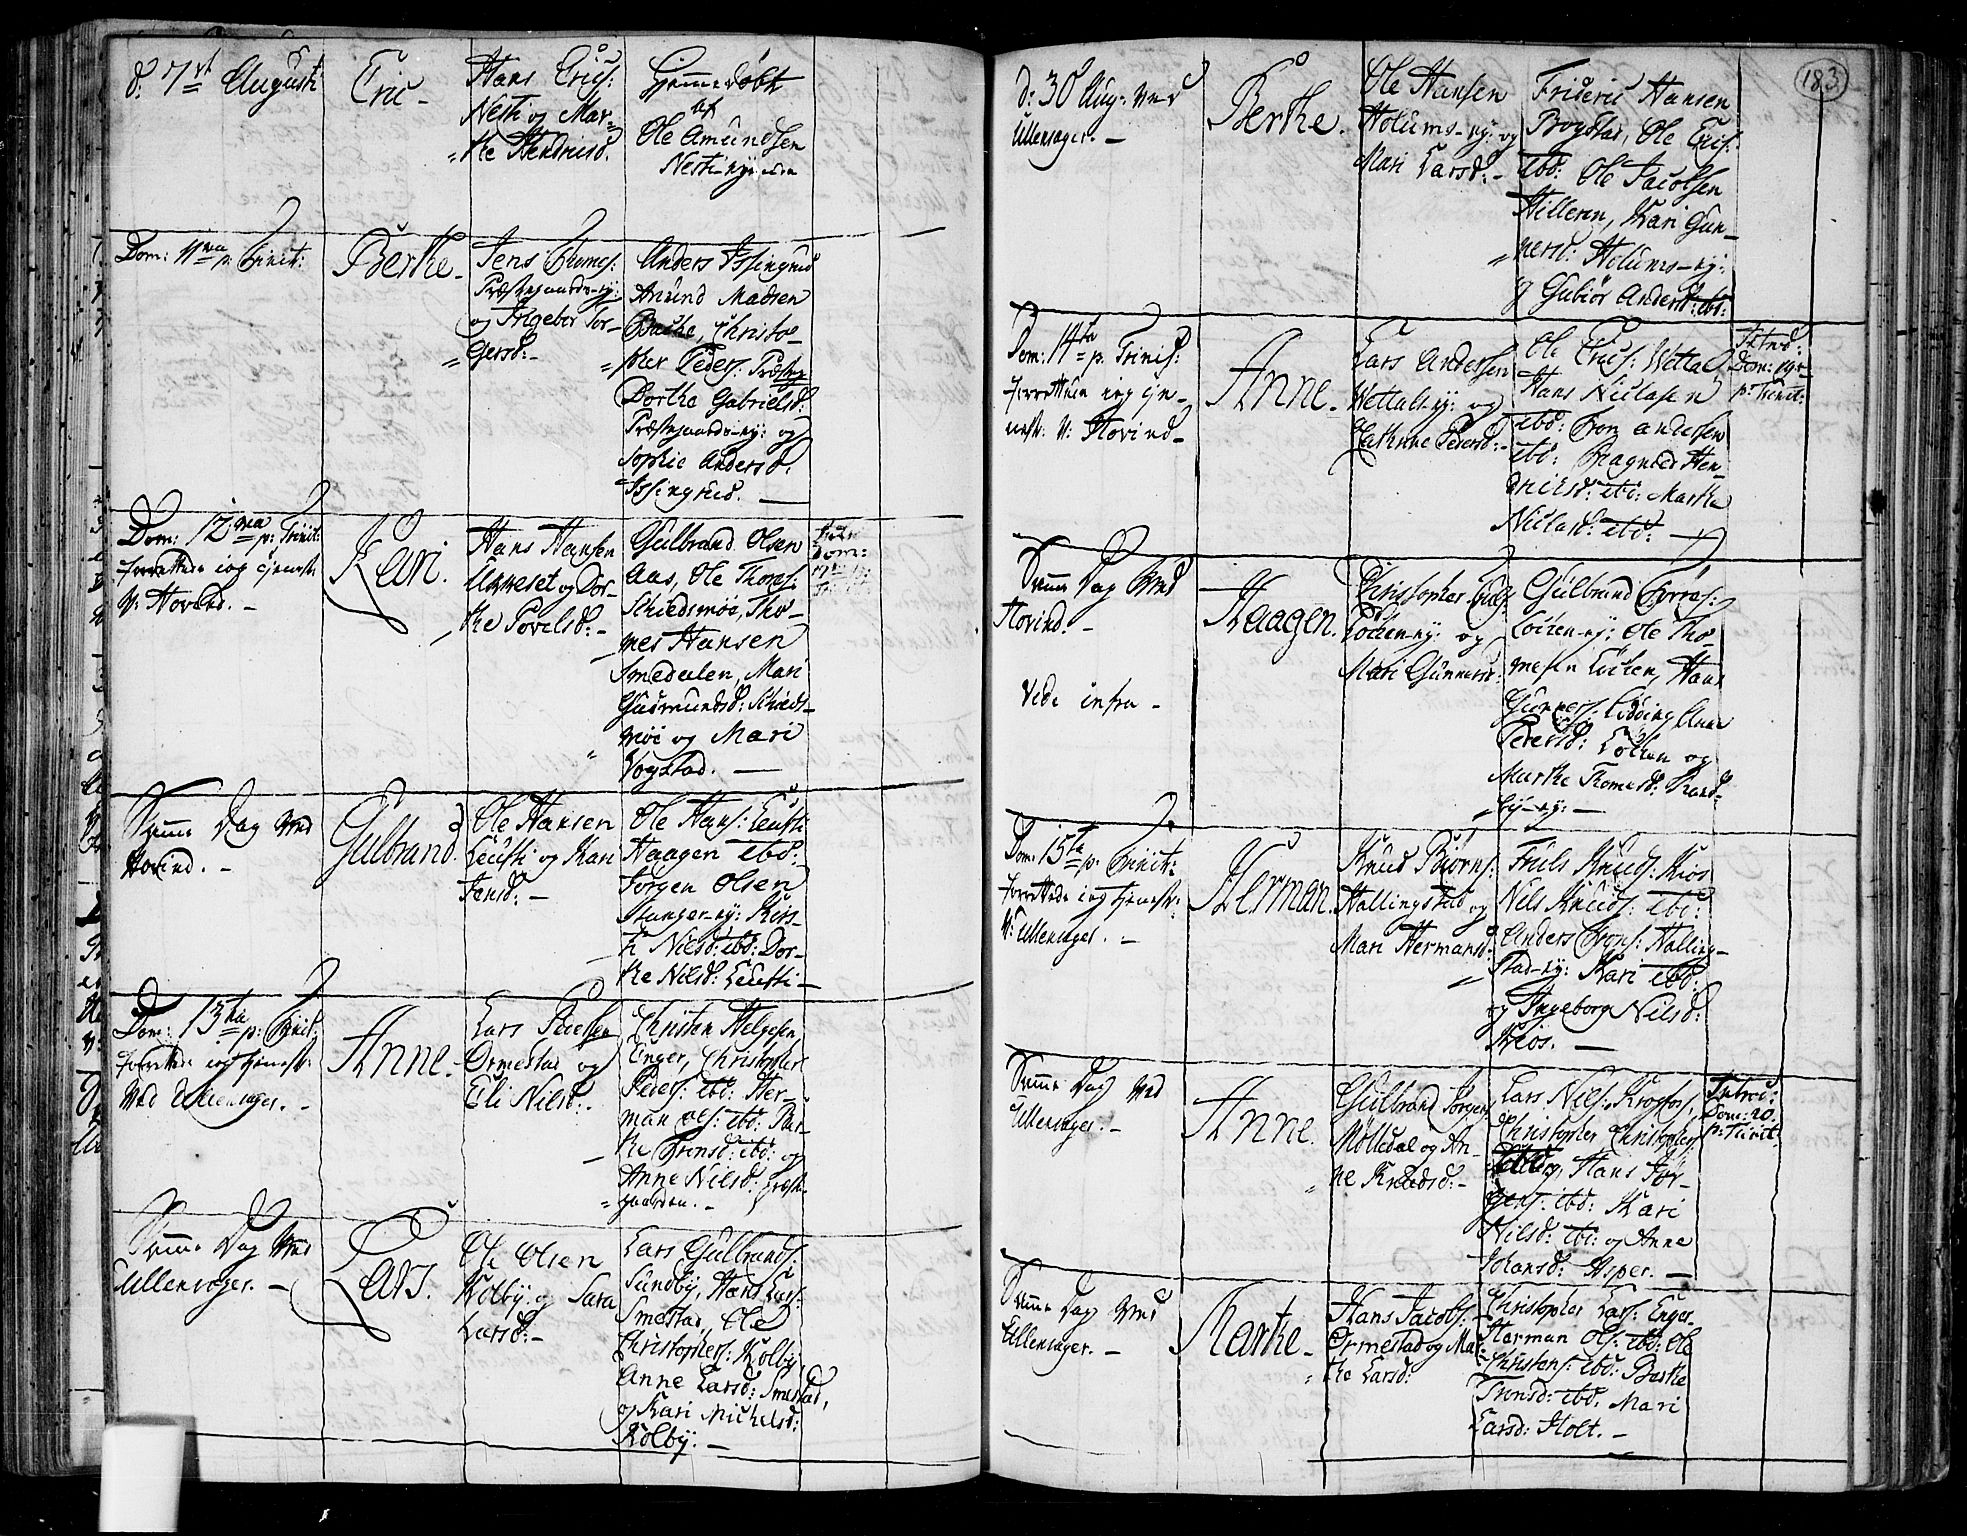 d: 7de Augusti
Eric -
Hans Erics:
Nesti og Mar=
the Hendricsd.
Hjemmedøbt
af
Ole Amundsen
Nesti-ej:
Dom: 11ma p. Trinit:
Berthe -
Jens Thomes:
Præstegaards-ej:
og Ingebor Tor-
gersd: -
Anders Issingrud
Amund Madsen
Bache, Christo-
pher Peders: Præsteg
Dorthe Gabrielsd:
Præstegaards-ej: og
Sophie Andersd.
Issingrud. -
Dom: 12ma p: Trinit:
forrettede iog tjenest:
v: Hovind. -
Kari.
Hans Hansen
og Dor-
the Povelsd: -
Gulbrand Olsen
Aas, Ole Thoms:
Schiedsmoe, Tho-
mes Hansen
Smedalen, Mari
Gudmundsd: Schieds-
moe og Mari
Vogstad. -
Dom:
Samme Dag ved
Hovind. -
Gulbrand.
Ole Hansen
Leusti og Kari
Jensd: -
Ole Hans: Leusti
Haagen ibd:
Jorgen Olsen
Stanger-ej: Kirs-
ti Nilsd: ibd: Dor-
the Nilsd: Leusti -
Dom: 13tia p: Trinit:
forrettede iog tjenest:
ved Ullensager. -
Anne -
Lars
Ormestad og
Eli Nilsd: -
Christen Helgesen
Enger, Christopher
Peders: ibd: Her-
man Ols: ibd: Ber-
the Tronsd: ibd: og
Anne Nilsd: Præste-
gaarden. -
Samme Dag ved
Ullensager. -
Lars.
Ole Olsen
Kolby og Sara
Larsd: -
Lars Gulbrands:
Sundby, Hans Lars:
Smestad, Ole
Christophers: Kolby,
Anne Larsd: Smestad,
og Kari Michelsd:
Kolby. -
183
d: 30 Aug: ved
Ullensager. -
Berthe.
Ole Hansen
Holums-ej: og
Mari Larsd: -
Frideric Hansen
Brogstad, Ole Erics:
ibd: Ole Jacobsen
Hilleren, Kari Gun-
nersd: Holums-ej:
og Gubiør Andersd: ibd:
Dom: 14ta p. Trinit:
forrettede iog tje-
nest: v: Hovind -
Anne -
Lars Andersen
Wettals-ej: og
Cathrine Pedersd: -
Ole Erics: Wettal
Hans Niclasen
ibd: Tron Andersen
ibd: Ragnild Hen-
dricsd: ibd: Marthe
Niclasd: ibd: -
Introd:
Dom: 19de
p: Trinit:
Samme Dag ved
Hovind. -
Vide infra -
Haagen.
Christopher
Lochen-ej: og
Mari Gunnersd:
Gulbrand
Lochen-ej: Ole Tho-
mesen Lochen, Hans
Gunners: Anne
Pedersd: Lochen og
Marthe Thomesd: Rand-
by-ej: -
Dom: 15ta p. Trinit:
forrettede iog tjenest:
v: Ullensager. -
Herman.
Knud Biørns:
Hallingstad og
Mari Hermansd:
Truls Knuds: Kios
Nils Knuds: ibd:
Anders Trons: Halling-
stad-ej: Kari ibd:
og Ingeborg Nilsd:
Kios. -
Samme Dag ved
Ullensager. -
Anne.
Gulbrand Jorgens:
Mølledal og An-
ne Knudsd: -
Lars Nils: Krogfos,
Christopher Christophers:
Hans Jør-
gens: ibd: Kari
Nilsd: ibd: og Anne
Johansd: Asper. -
Introd:
Dom: 20.
p: Trinit:
Samme Dag ved
Ullensager. -
Marthe -
Hans Jacobs:
Ormestad og Mar-
the Larsd:
Christopher Lars: Enger
Herman Ols: ibd: Ole
Christens: ibd: Berthe
Tronsd: ibd. Mari
Larsd: Holt. -